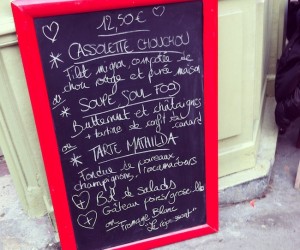 12,50€
CASSOLETTE CHOUCHOU
Filet mignon, compotée de
chou rouge et purée maison
ou
SOUPE SOUL FOOD
Butternut et châtaignes
+ tartine de confit de canard
ou
TARTE MATHILDA
Fondue de poireaux,
champignons,
+ Bol de salade
+ Gâteau poire/groseille
ou Fromage Blanc